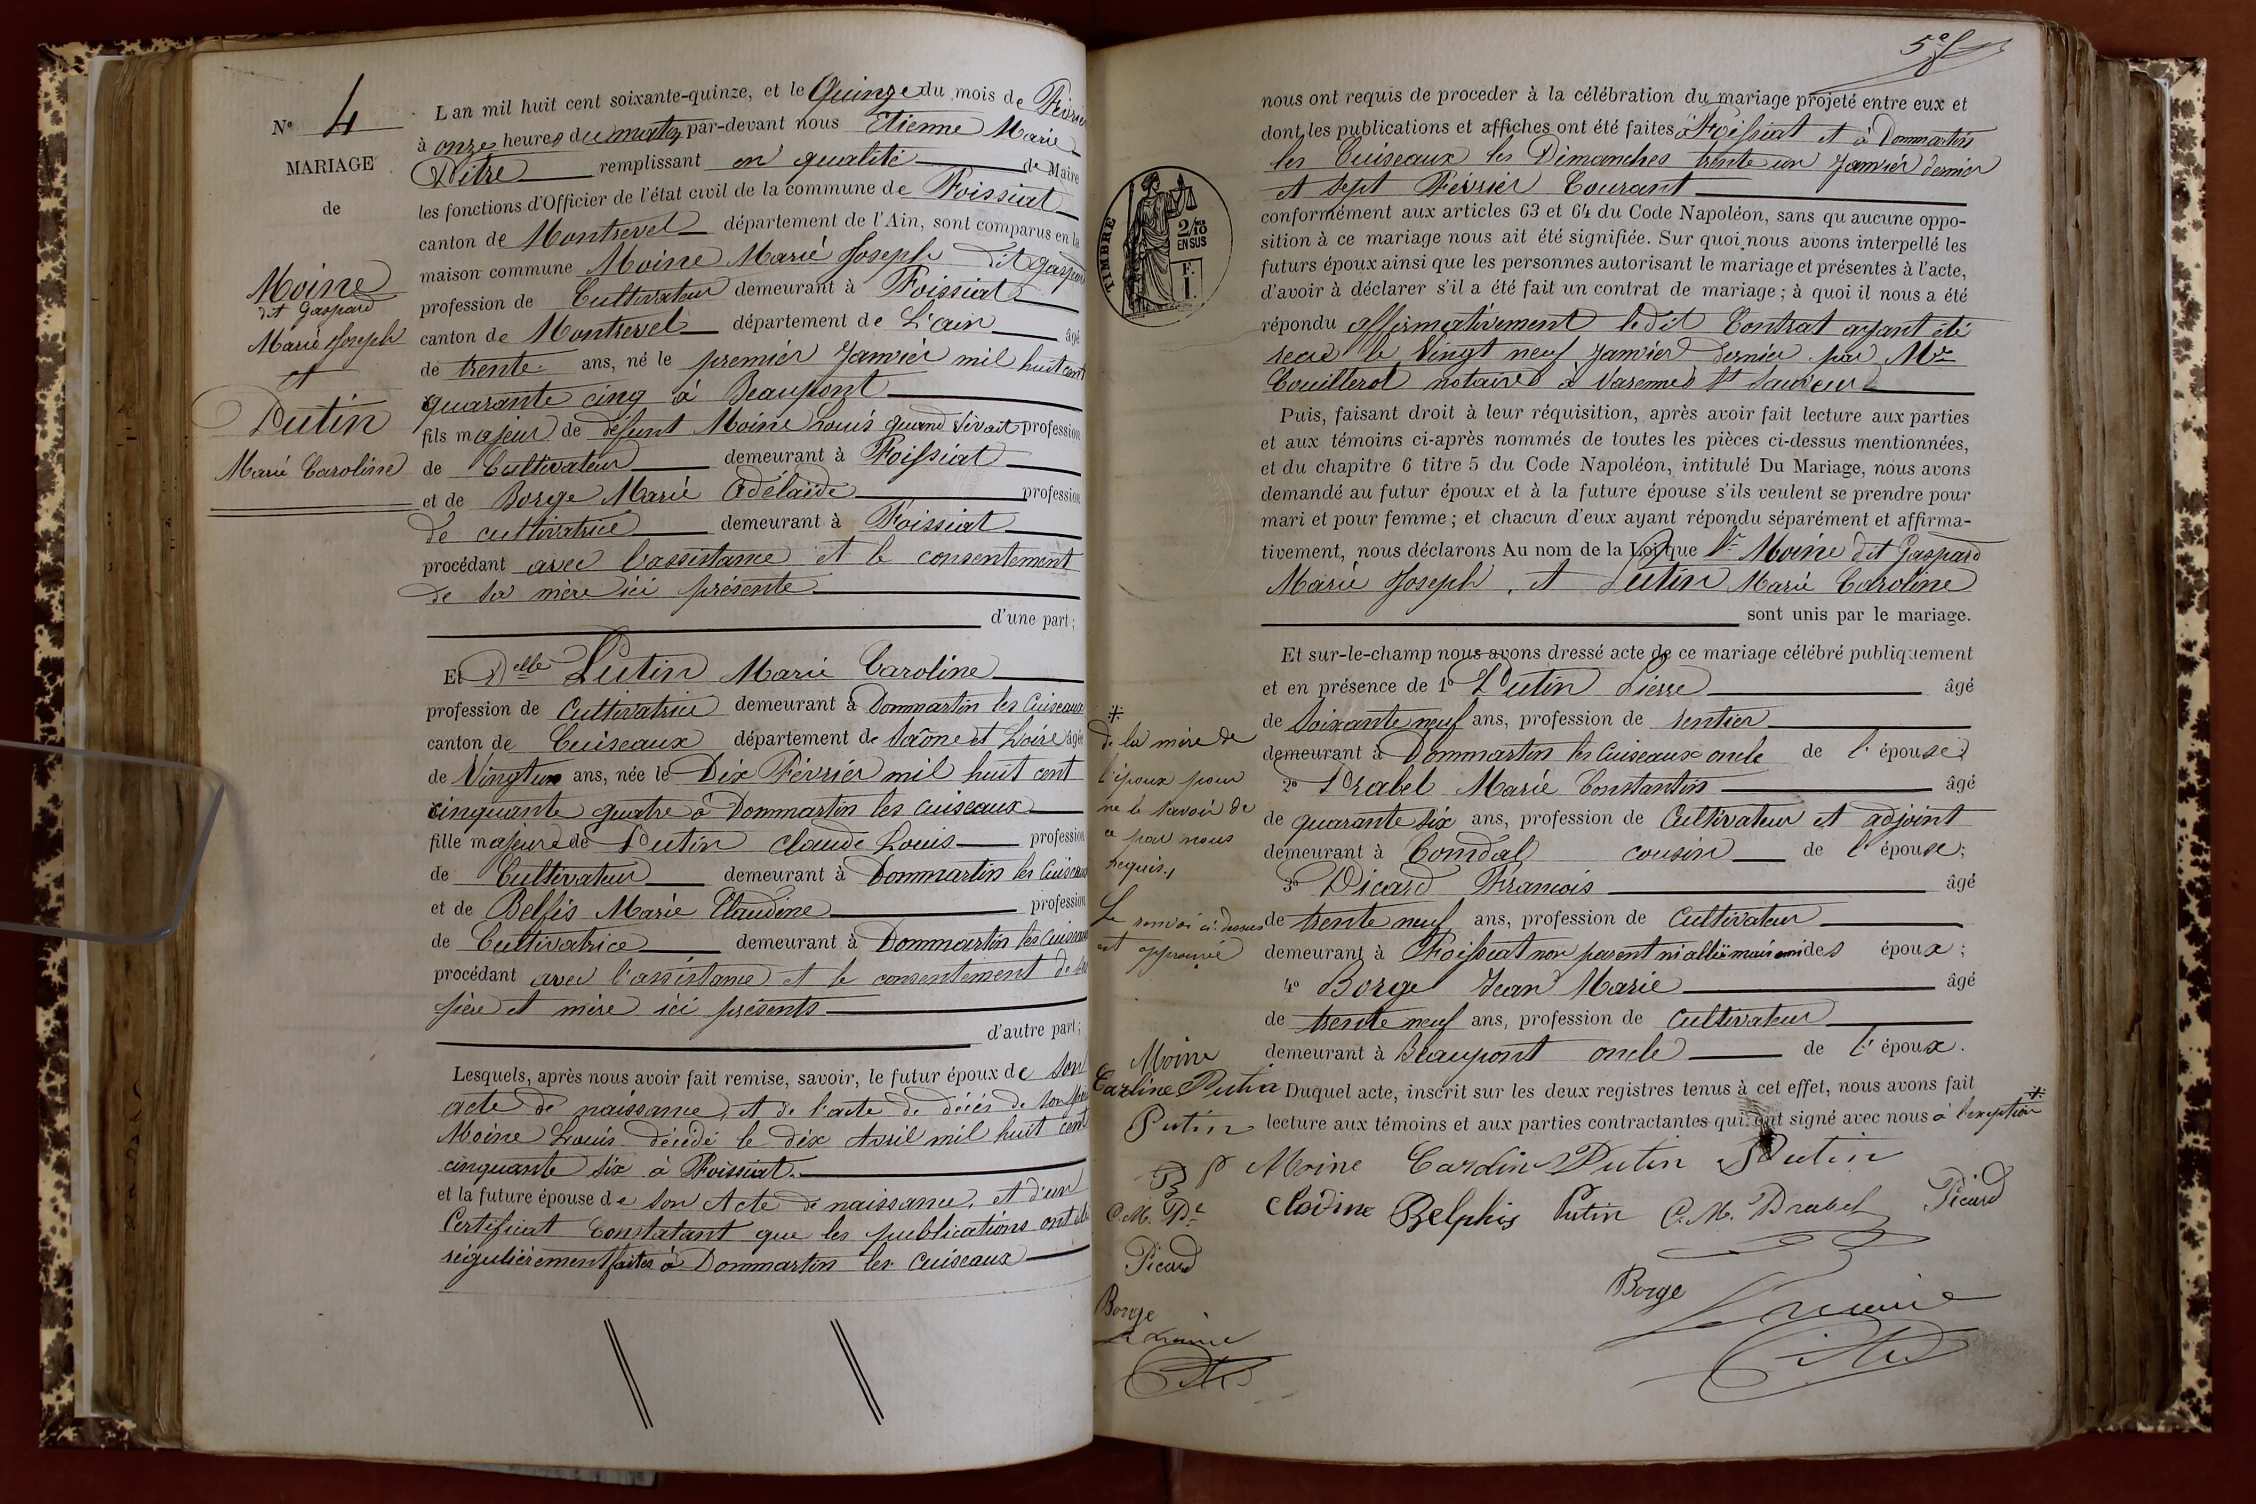 N° 4
MARIAGE
de
Moine
dit Gaspard
Marie Joseph
et
Putin
Marie Caroline
L'an mil huit cent soixante-quinze, et le Quinze du mois de Février
à onze heures du matin par-devant nous Etienne Marie
Pitre remplissant en qualité de Maire
les fonctions d'Officier de l'état civil de la commune de Foissiat
canton de Montrevel département de l'Ain, sont comparus en la
maison commune Moine Marie Joseph dit Gaspard
profession de Cultivateur demeurant à Foissiat
canton de Montrevel département de L'ain âgé
de trente ans, né le premier Janvier mil huit cent
quarante cinq à Beaupont
fils majeur de défunt Moine Louis quand vivait profession
de Cultivateur demeurant à Foissiat
et de Borge Marie Adélaïde profession
de cultivatrice demeurant à Foissiat
procédant avec l'assistance et le consentement
de sa mère ici présente
d'une part;
Et Delle Putin Marie Caroline
profession de Cultivatrice demeurant à Dommartin les Cuiseaux
canton de Cuiseaux département de Saône et Loire âgée
de Vingt un ans, née le Dix Février mil huit cent
cinquante quatre à Dommartin les cuiseaux
fille majeure de Putin Claude Louis profession
de Cultivateur demeurant à Dommartin les Cuiseaux
et de Belfis Marie Claudine profession
de Cultivatrice demeurant à Dommartin les cuiseaux
procédant avec l'assistance et le consentement de ses
père et mère ici présents
d'autre part;
Lesquels, après nous avoir fait remise, savoir, le futur époux de son
acte de naissance, et de l'acte de décés de son père
Moine Louis décédé le dix Avril mil huit cent
cinquante six à Foissiat.
et la future épouse de son Acte de naissance, et d'un
Certificat Constatant que les publications ont été
régulièrement faites à Dommartin les cuiseaux
5e f
TIMBRE
2/10
EN SUS
nous ont requis de proceder à la célébration du mariage projeté entre eux et
dont les publications et affiches ont été faites à Foissiat et à Dommartin
les Cuiseaux les Dimanches trente un Janvier dernier
et sept Février Courant
conformément aux articles 63 et 64 du Code Napoléon, sans qu'aucune oppo-
sition à ce mariage nous ait été signifiée. Sur quoi nous avons interpellé les
futurs époux ainsi que les personnes autorisant le mariage et présentes à l'acte,
d'avoir à déclarer s'il a été fait un contrat de mariage; à quoi il nous a été
répondu affirmativement ledit Contrat ayant été
recu le Vingt neuf Janvier dernier par Me
Couillerot notaire à Varennes St Sauveur
Puis, faisant droit à leur réquisition, après avoir fait lecture aux parties
et aux témoins ci-après nommés de toutes les pièces ci-dessus mentionnées,
et du chapitre 6 titre 5 du Code Napoléon, intitulé Du Mariage, nous avons
demandé au futur époux et à la future épouse s'ils veulent se prendre pour
mari et pour femme; et chacun d'eux ayant répondu séparément et affirma-
tivement, nous déclarons Au nom de la Loi que Sr Moine dit Gaspard
Marie Joseph, et Putin Marie Caroline
sont unis par le mariage.
Et sur-le-champ nous avons dressé acte de ce mariage célébré publiquement
et en présence de 1° Putin Pierre âgé
de Soixante neuf ans, profession de rentier
demeurant à Dommartin les Cuiseaux oncle de l'épouse
2° Drabel Marie Constantin âgé
de quarante six ans, profession de Cultivateur et adjoint
demeurant à Condal cousin de l'épouse;
3° Picard Francois âgé
de trente neuf ans, profession de Cultivateur
demeurant à Foissiat non parent ni allié mais ami des époux;
4° Borge Jean Marie âgé
de trente neuf ans, profession de Cultivateur
demeurant à Beaupont oncle de l'époux.
Duquel acte, inscrit sur les deux registres tenus à cet effet, nous avons fait
lecture aux témoins et aux parties contractantes qui ont signé avec nous à l'exception *
* de la mère de
l'époux pour
ne le savoir de
ce par nous
requis.
Le renvoi ci-dessus
est approuvé
Moine
Carline Putin
Putin
B P
C.M. De
Picard
Borge
Le maire
Moine Carolin Putin Putin
Clodine Belphis Putin C.M. Drabel Picard
Borge
Le maire